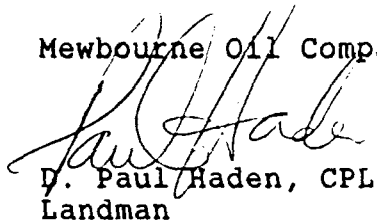 Mewbourne Oil Comp
Paul Haden
D. Paul Haden, CPL
Landman